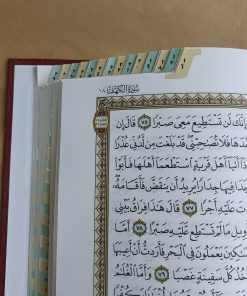 سُورَةُ الكَهْفِ ١٨
إِنَّكَ لَن تَسْتَطِيعَ مَعِىَ صَبْرًا ٧٥ قَالَ إِن
فَلَا تُصَٰحِبْنِى قَدْ بَلَغْتَ مِن لَّدُنِّى عُذْرًا
إِذَآ أَتَيَآ أَهْلَ قَرْيَةٍ ٱسْتَطْعَمَآ أَهْلَهَا فَأَبَوْا۟
فِيهَا جِدَارًا يُرِيدُ أَن يَنقَضَّ فَأَقَامَهُۥ
عَلَيْهِ أَجْرًا ٧٧ قَالَ هَٰذَا فِرَاقُ بَيْنِى
مَا لَمْ تَسْتَطِع عَّلَيْهِ صَبْرًا ٧٨
يَعْمَلُونَ فِى ٱلْبَحْرِ فَأَرَدتُّ أَنْ أَعِيبَهَا
كُلَّ سَفِينَةٍ غَصْبًا ٧٩ وَأَمَّا ٱلْغُلَٰمُ